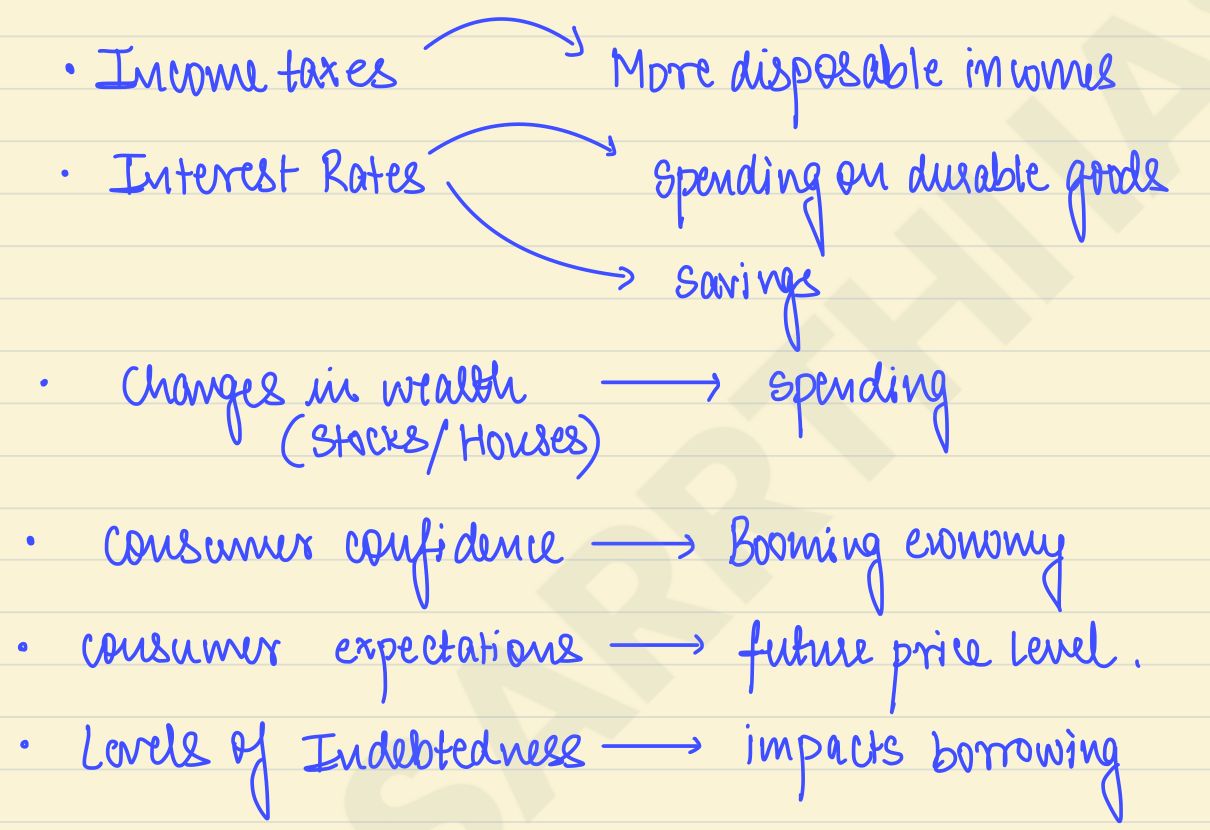 • Income taxes → More disposable incomes
• Interest Rates → Spending on durable goods
→ Savings
• Changes in wealth → spending
(Stocks/Houses)
• Consumer confidence → Booming economy
• Consumer expectations → future price level.
• Levels of Indebtedness → impacts borrowing
SARRTHI IAS